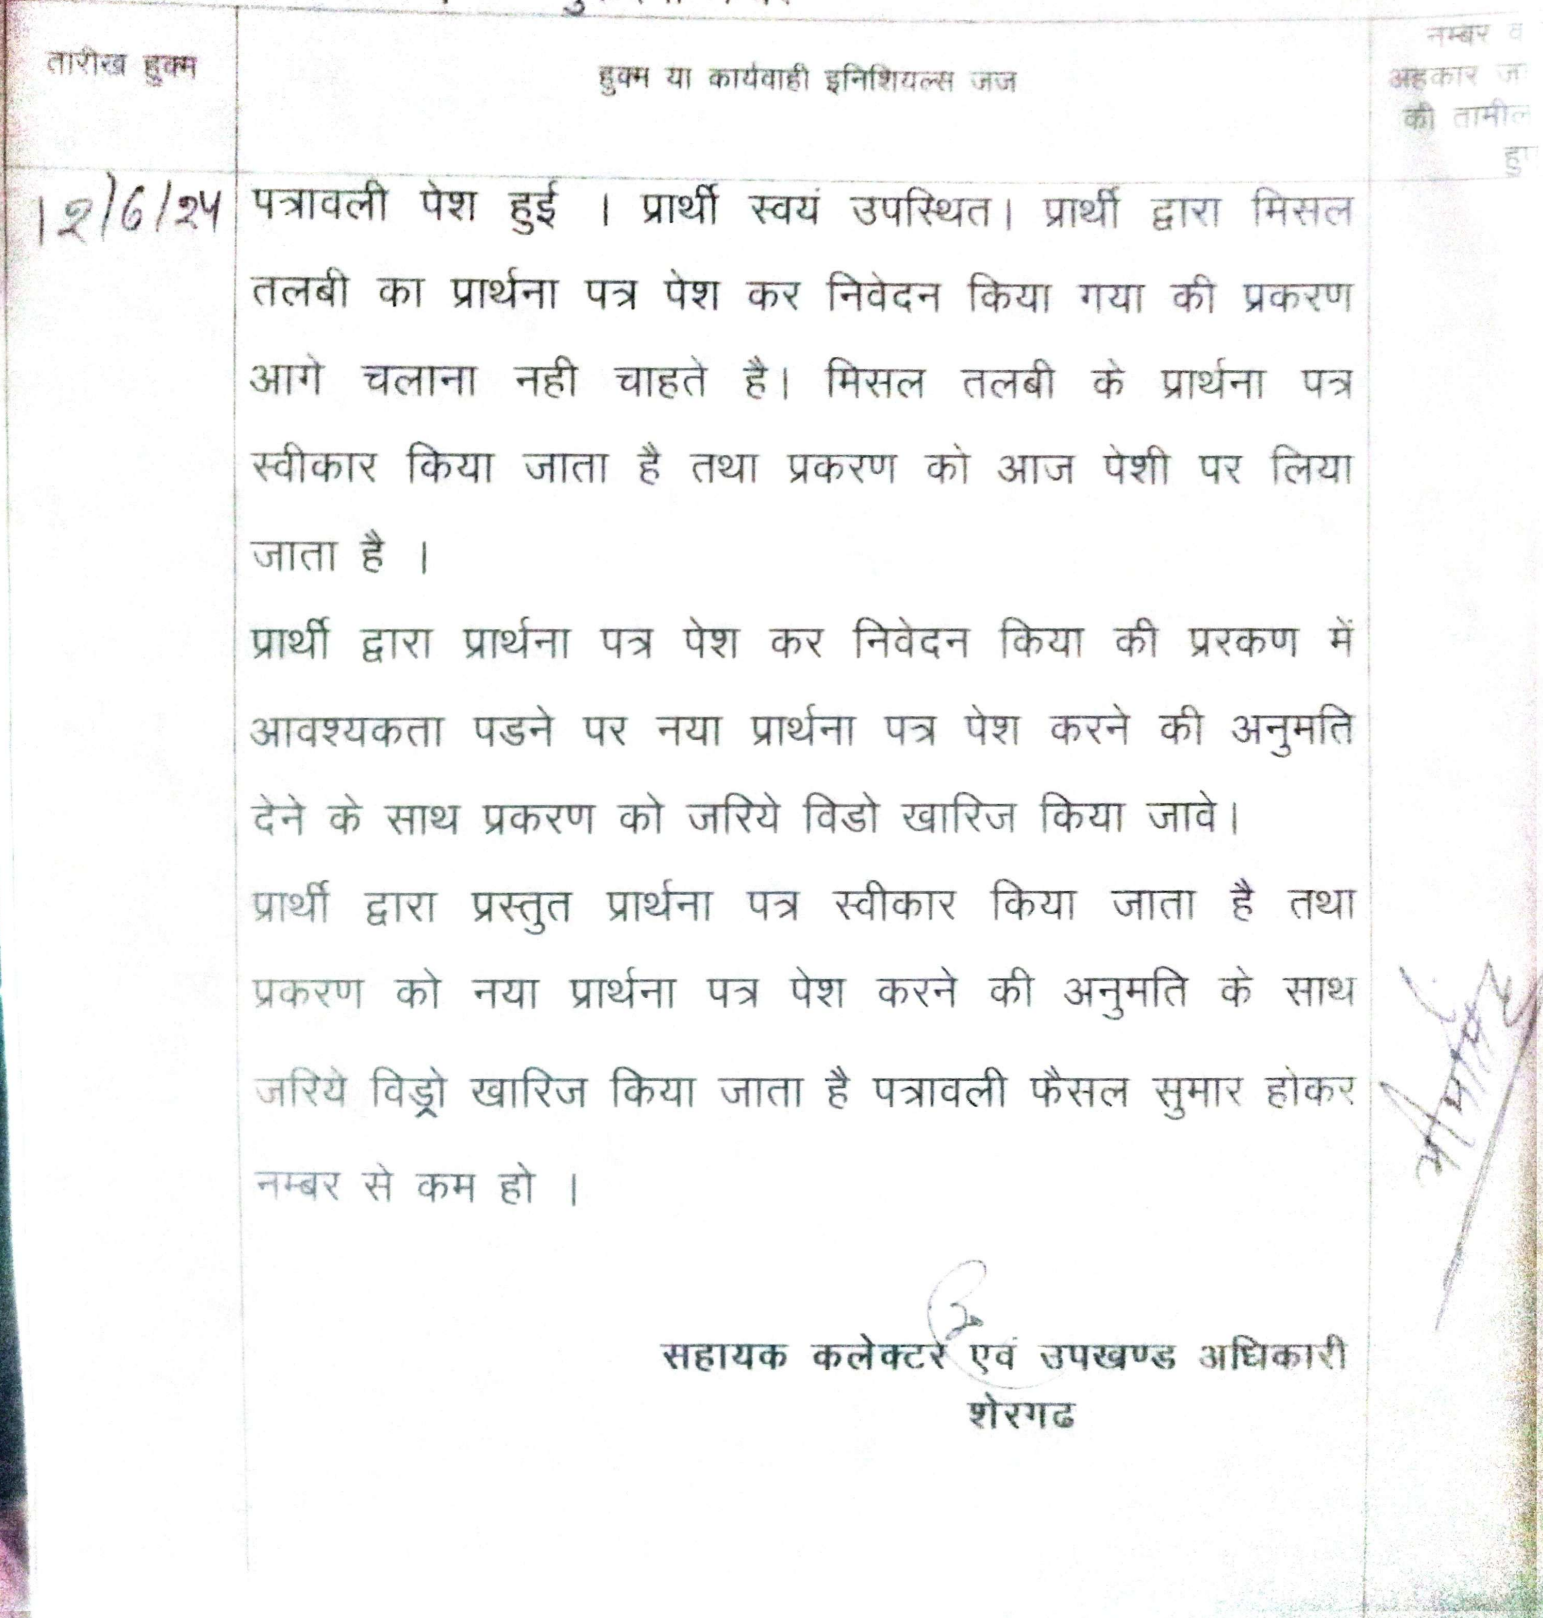 तारीख हुक्म
हुक्म या कार्यवाही इनिशियल्स जज
नम्बर व
अहकार ज
की तामील
हु
12/6/24
पत्रावली पेश हुई । प्रार्थी स्वयं उपस्थित। प्रार्थी द्वारा मिसल
तलबी का प्रार्थना पत्र पेश कर निवेदन किया गया की प्रकरण
आगे चलाना नही चाहते है। मिसल तलबी के प्रार्थना पत्र
स्वीकार किया जाता है तथा प्रकरण को आज पेशी पर लिया
जाता है ।
प्रार्थी द्वारा प्रार्थना पत्र पेश कर निवेदन किया की प्ररकण में
आवश्यकता पडने पर नया प्रार्थना पत्र पेश करने की अनुमति
देने के साथ प्रकरण को जरिये विडो खारिज किया जावे।
प्रार्थी द्वारा प्रस्तुत प्रार्थना पत्र स्वीकार किया जाता है तथा
प्रकरण को नया प्रार्थना पत्र पेश करने की अनुमति के साथ
जरिये विड्रो खारिज किया जाता है पत्रावली फैसल सुमार होकर
नम्बर से कम हो ।
सहायक कलेक्टर एवं उपखण्ड अधिकारी
शेरगढ